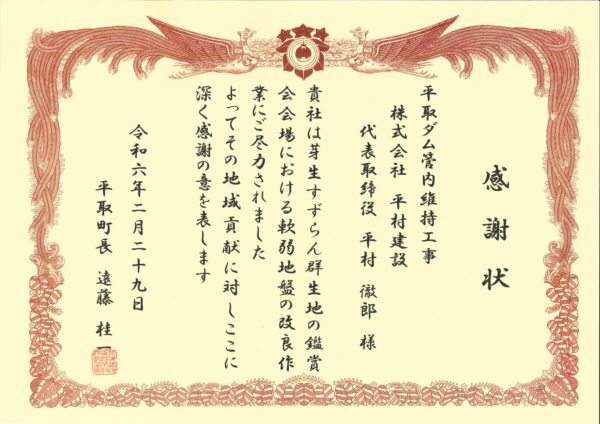 感謝状
平取ダム管内維持工事
株式会社 平村建設
代表取締役 平村 徹郎 様
貴社は芽生すずらん群生地の鑑賞
会会場における軟弱地盤の改良作
業にご尽力されました
よってその地域貢献に対しここに
深く感謝の意を表します
令和六年二月二十九日
平取町長 遠藤 桂一